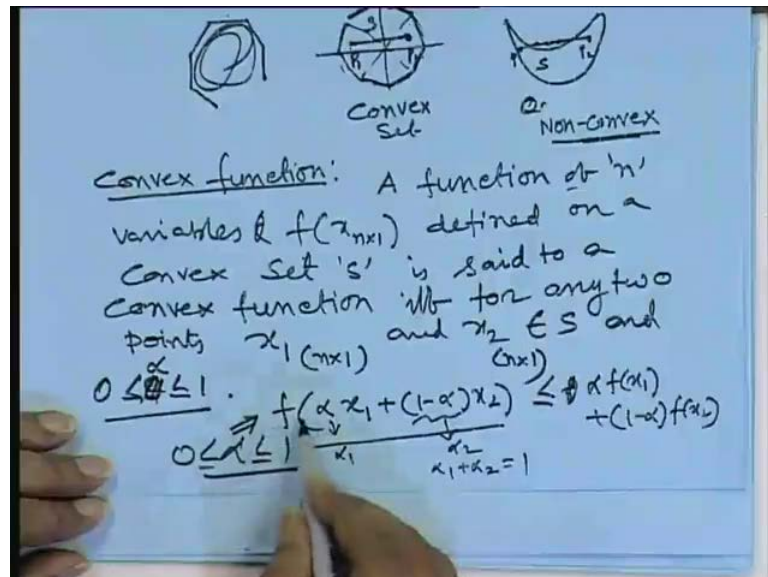 S
P1 P2
P1 S P2
Convex
Set
Or
Non-Convex
Convex function: A function of 'n'
variables f(x_{n×1}) defined on a
Convex Set 'S' is said to a
Convex function iff for any two
points x_1 (n×1) and x_2 ∈ S and
(n×1)
0 ≤ α ≤ 1 .
f(α x_1 + (1-α) x_2) ≤ α f(x_1)
+ (1-α) f(x_2)
0 ≤ α ≤ 1
α_1 α_2
α_1 + α_2 = 1